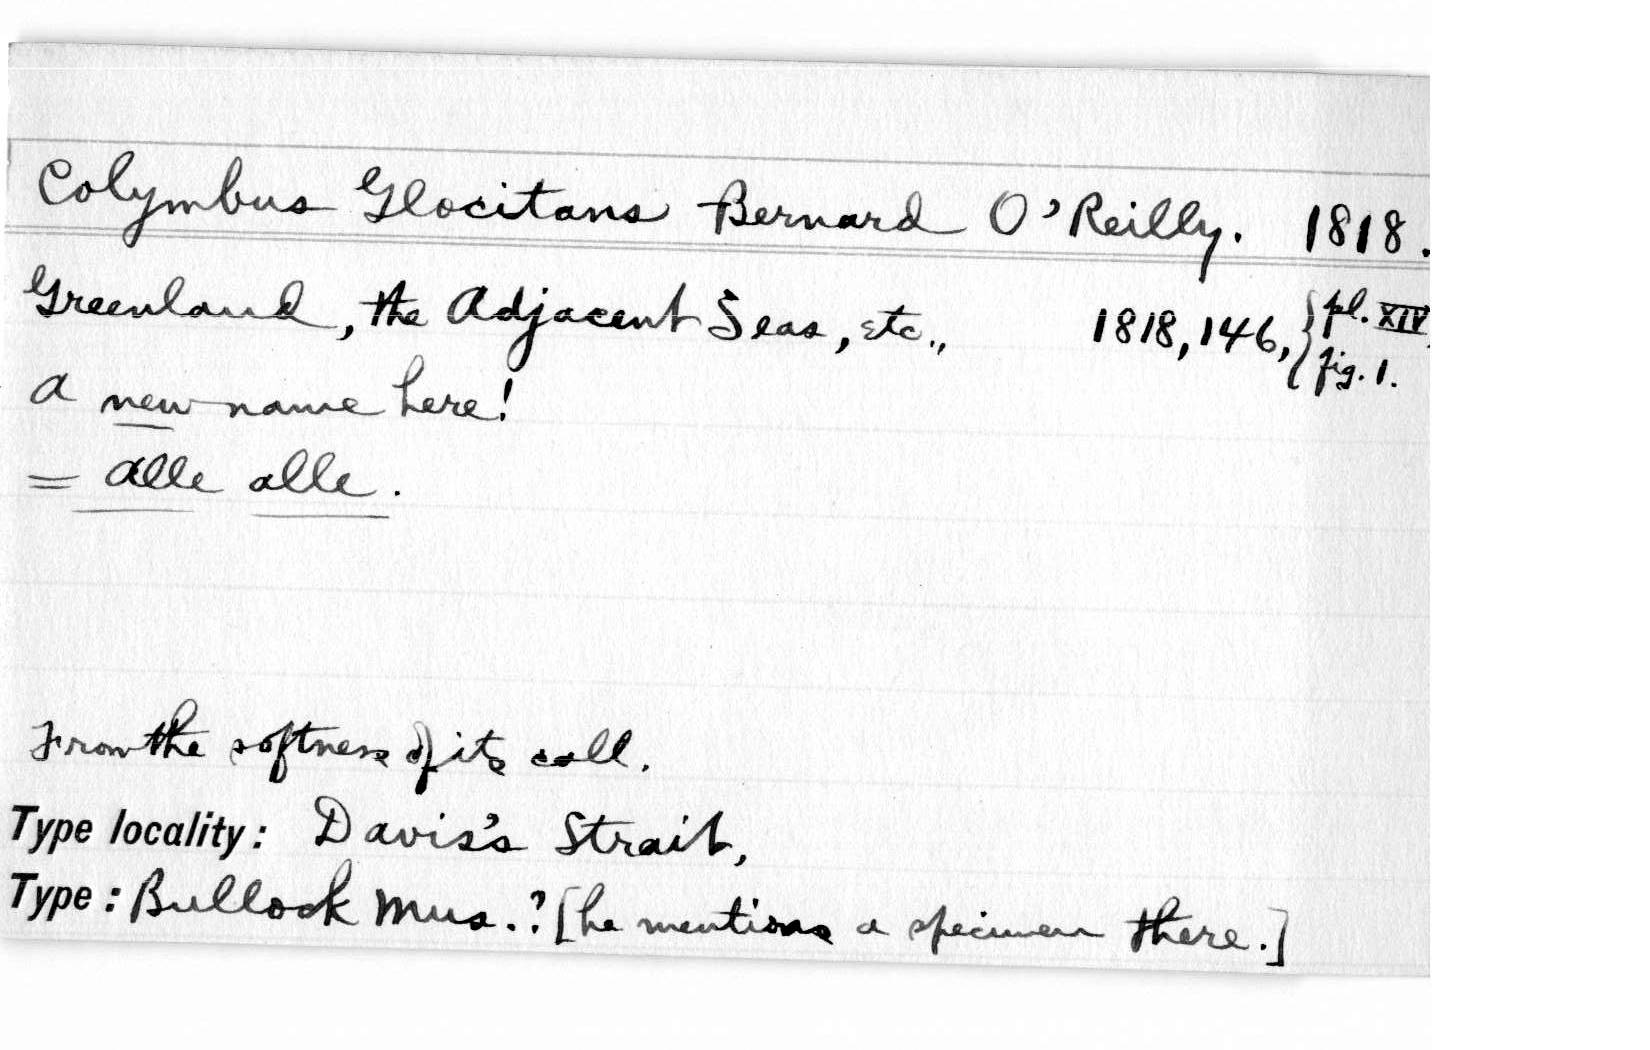 Colymbus Glocitans Bernard O'Reilly. 1818.
Greenland, the Adjacent Seas, etc., 1818, 146, { pl. XIV, fig. 1.
A new name here!
= Alle alle.
From the softness of its call.
Type locality: Davis's Strait,
Type: Bullock Mus.? [he mentions a specimen there.]